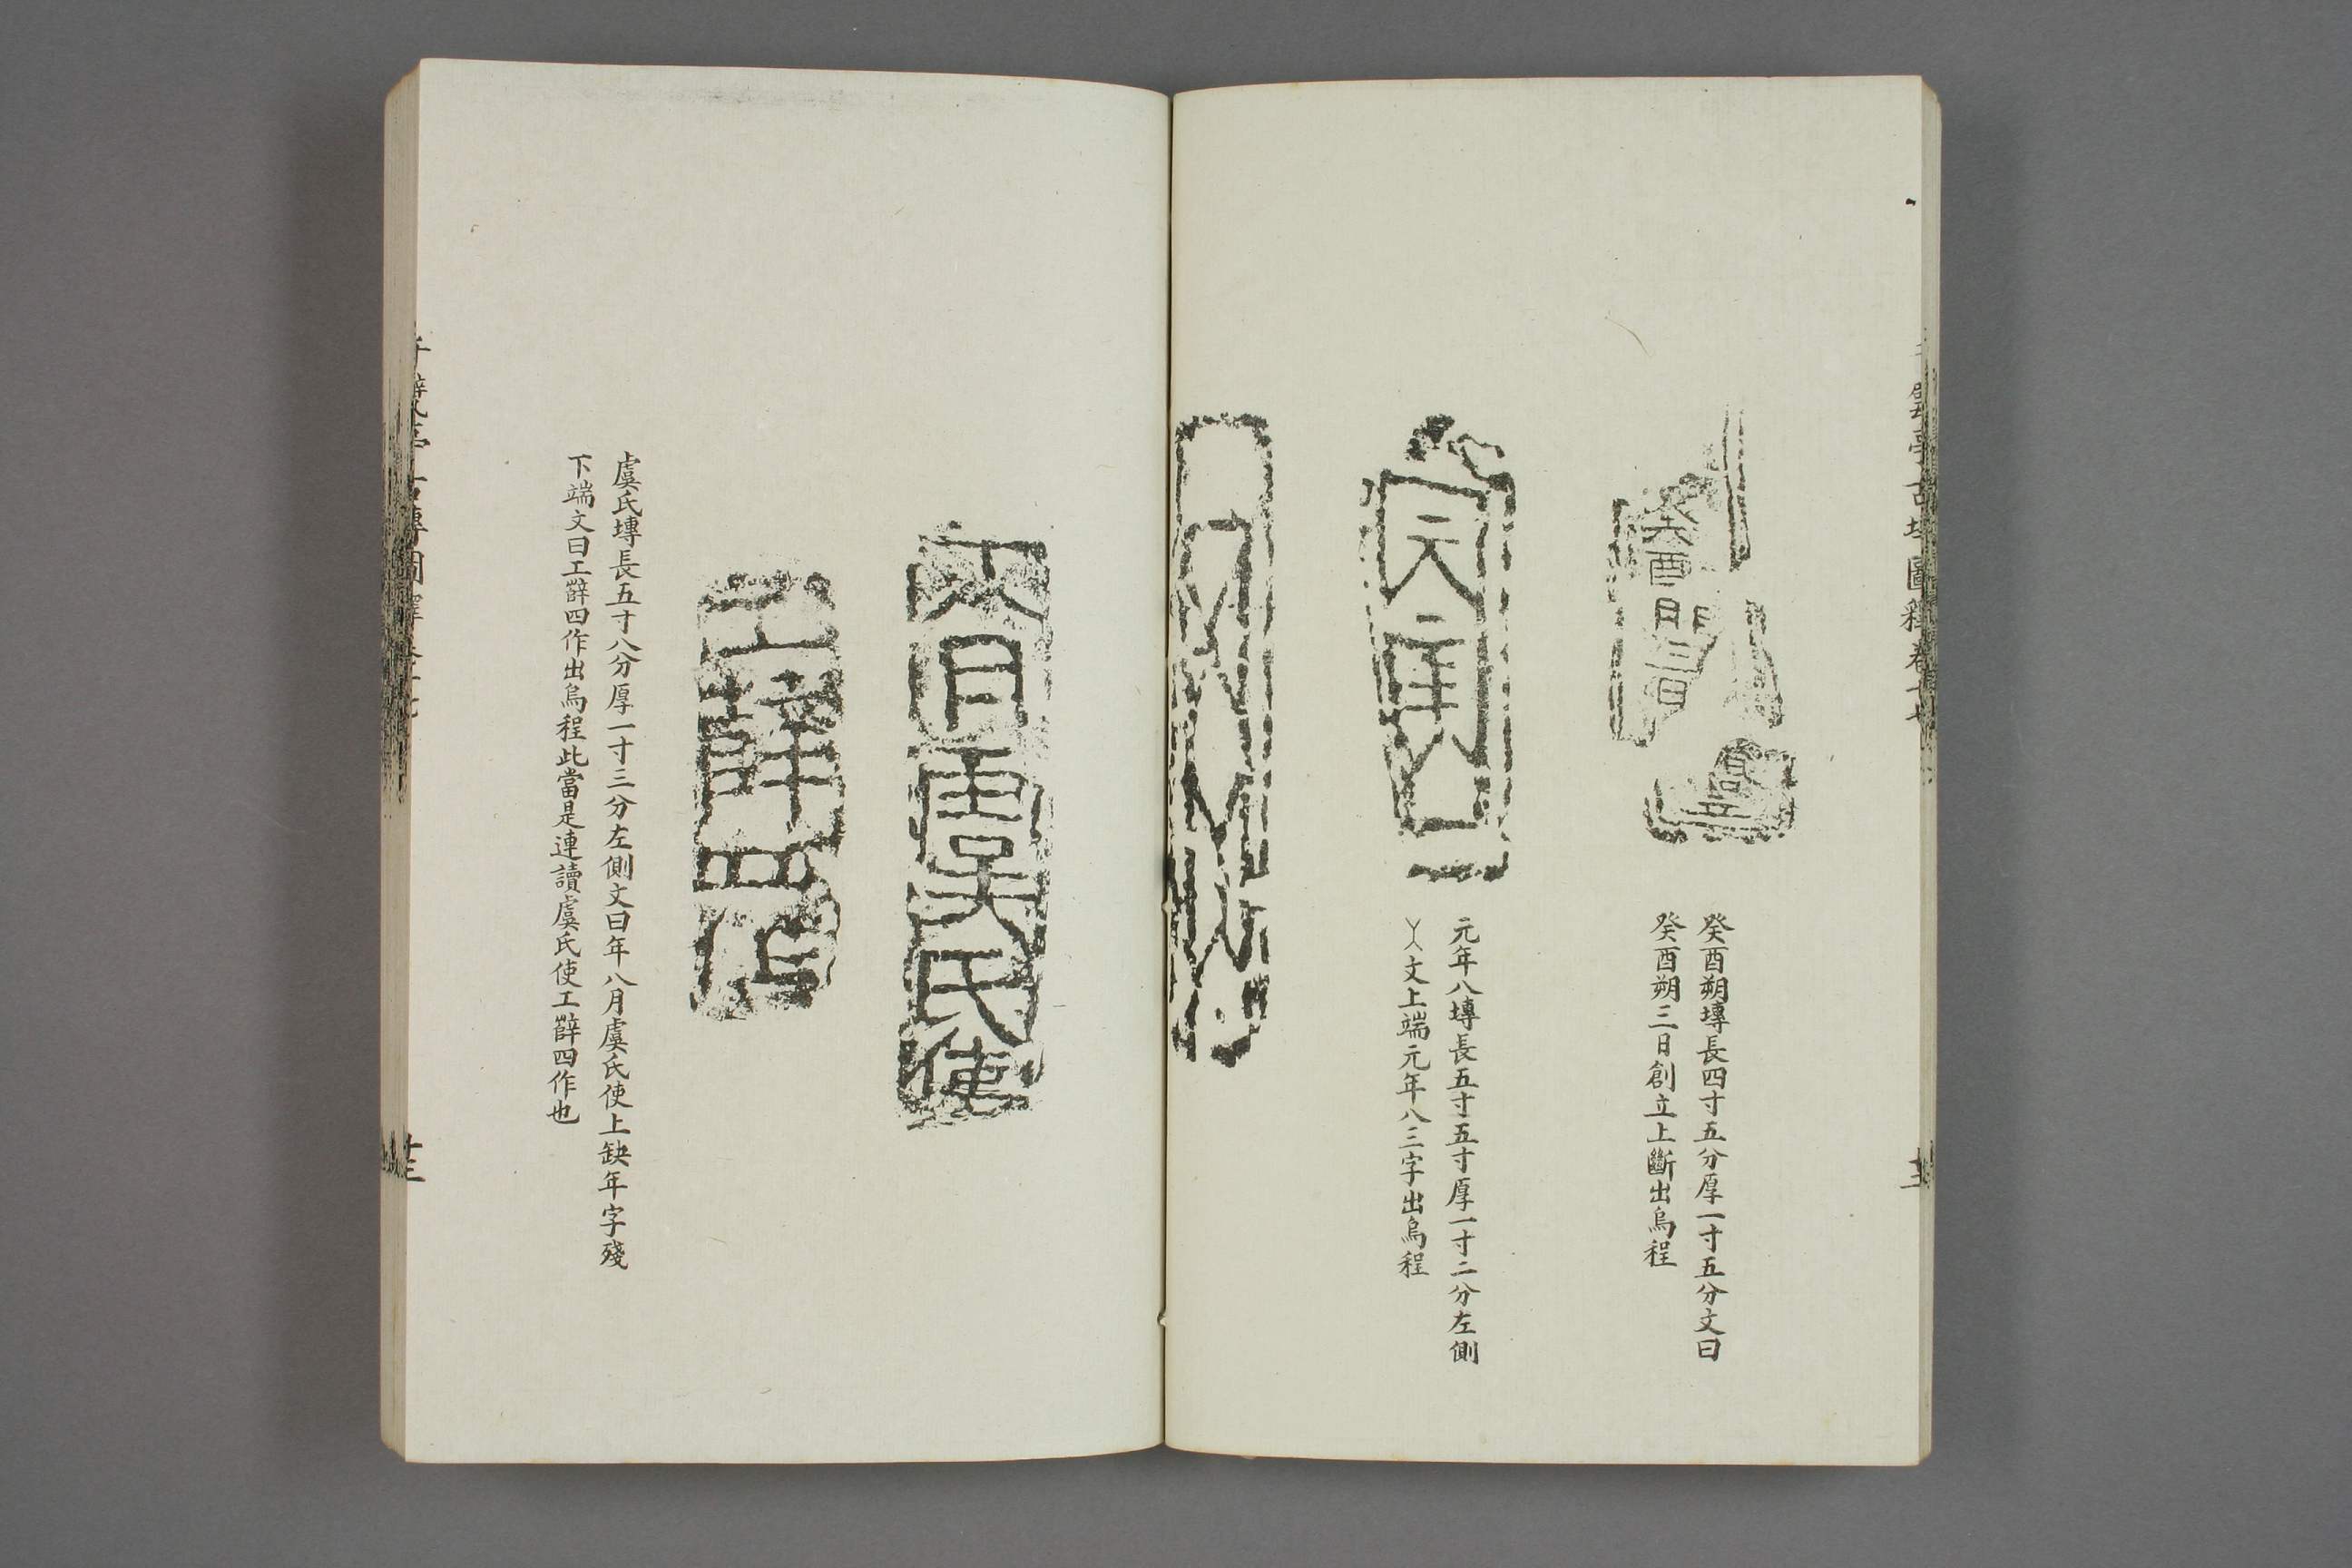 癸酉朔三日
癸酉朔塼長四寸五分厚一寸五分文曰
癸酉朔三日創立上斷出烏程
元年八
元年八塼長五寸五寸厚一寸二分左側
文上端元年八三字出烏程
年八月虞氏使
工薛四作
虞氏塼長五寸八分厚一寸三分左側文曰年八月虞氏使上缺年字殘
下端文曰工薛四作出烏程此當是連讀虞氏使工薛四作也